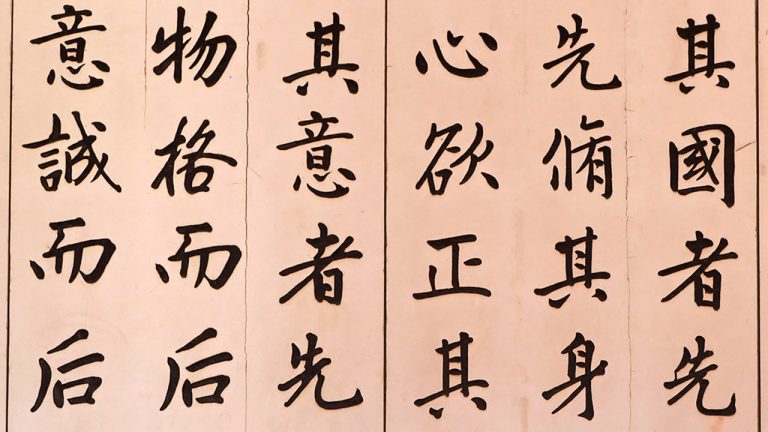 其國者先
先脩其身
心欲正其
其意者先
物格而后
意誠而后